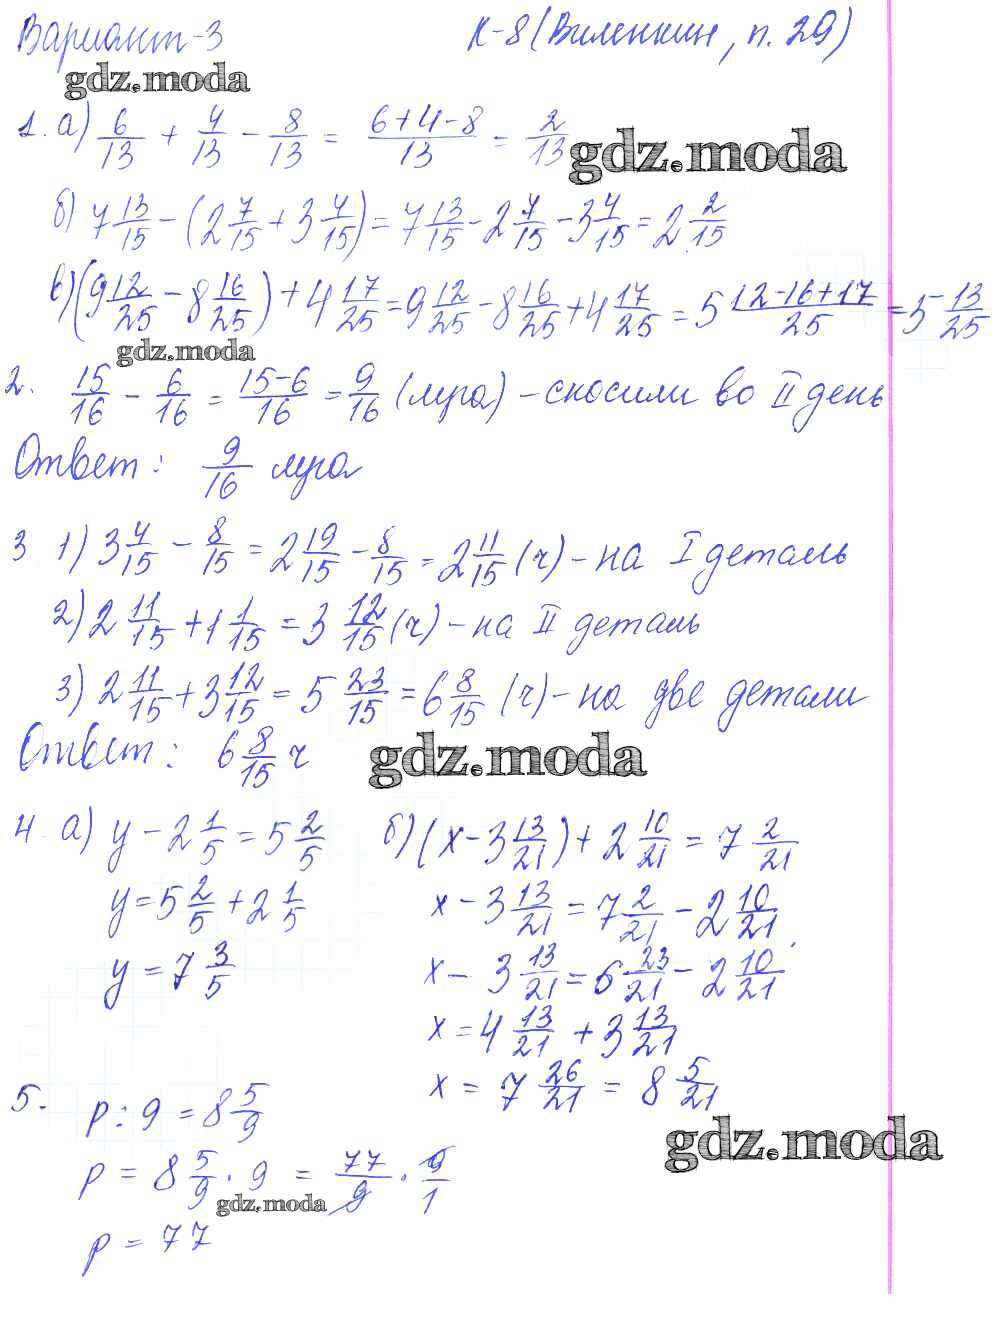 Вариант-3 К-8 (Виленкин, п. 29)
gdz.moda
1. а) 6/13 + 4/13 - 8/13 = (6+4-8)/13 = 2/13
gdz.moda
б) 7 13/15 - (2 7/15 + 3 4/15) = 7 13/15 - 2 7/15 - 3 4/15 = 2 2/15
в) (9 12/25 - 8 16/25) + 4 17/25 = 9 12/25 - 8 16/25 + 4 17/25 = 5 (12-16+17)/25 = 5 13/25
gdz.moda
2. 15/16 - 6/16 = (15-6)/16 = 9/16 (луга) - скосили во II день
Ответ: 9/16 луга
3 1) 3 4/15 - 8/15 = 2 19/15 - 8/15 = 2 11/15 (ч) - на I деталь
2) 2 11/15 + 1 1/15 = 3 12/15 (ч) - на II деталь
3) 2 11/15 + 3 12/15 = 5 23/15 = 6 8/15 (ч) - на две детали
Ответ: 6 8/15 ч
gdz.moda
4. а) y - 2 1/5 = 5 2/5
y = 5 2/5 + 2 1/5
y = 7 3/5
б) (x - 3 13/21) + 2 10/21 = 7 2/21
x - 3 13/21 = 7 2/21 - 2 10/21
x - 3 13/21 = 6 23/21 - 2 10/21
x = 4 13/21 + 3 13/21
x = 7 26/21 = 8 5/21
5. p : 9 = 8 5/9
gdz.moda
p = 8 5/9 · 9 = 77/9 · 9/1
gdz.moda
p = 77